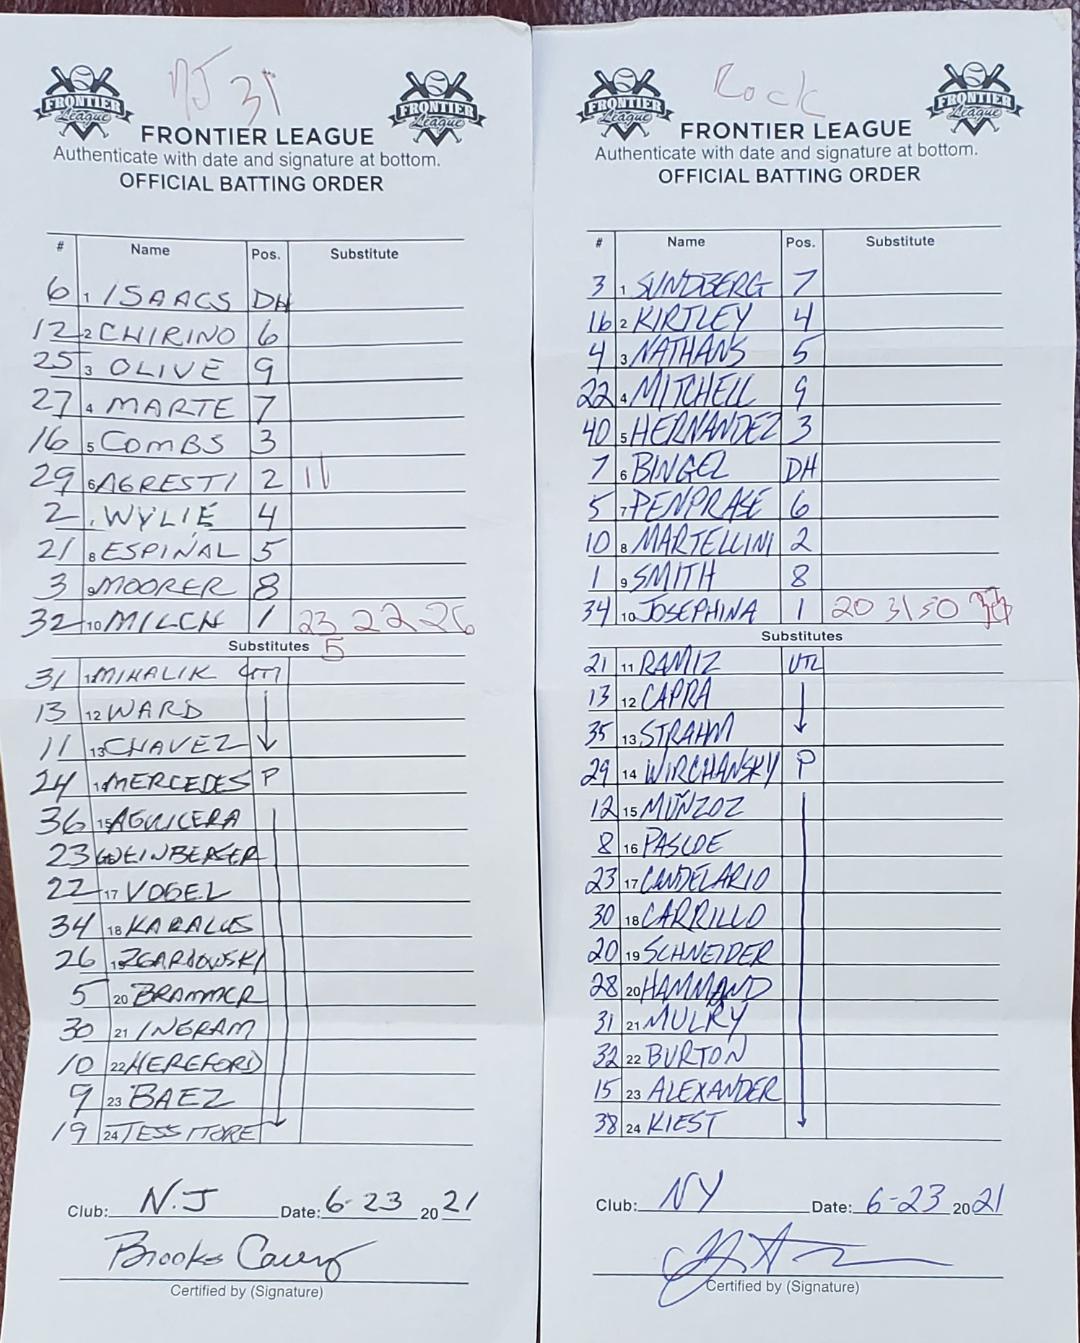 NJ 31
FRONTIER League
FRONTIER League
FRONTIER LEAGUE
Authenticate with date and signature at bottom.
OFFICIAL BATTING ORDER
# Name Pos. Substitute
6 1 ISAACS DH
12 2 CHIRINO 6
25 3 OLIVE 9
27 4 MARTE 7
16 5 COMBS 3
29 6 AGRESTI 2 11
2 WYLIE 4
21 8 ESPINAL 5
3 9 MOORER 8
32 10 MILCH 1 23 22 26
Substitutes 5
31 MIHALIK UTI
13 12 WARD
11 13 CHAVEZ
24 14 MERCEDES P
36 15 AGUICERA
23 WEINBERGER
22 17 VOGEL
34 18 KARALUS
26 19
5 20 BRAMMER
30 21 INGRAM
10 22 HEREFORD
9 23 BAEZ
19 24 TESSITORE
Club: N.J Date: 6-23 2021
Brooks Carey
Certified by (Signature)
Rock
FRONTIER League
FRONTIER League
FRONTIER LEAGUE
Authenticate with date and signature at bottom.
OFFICIAL BATTING ORDER
# Name Pos. Substitute
3 1 SUNDBERG 7
16 2 KIRTLEY 4
4 3 NATHANS 5
22 4 MITCHELL 9
40 5 HERNANDEZ 3
7 6 BINGEL DH
5 7 PENPRASE 6
10 8 MARTELLINI 2
1 9 SMITH 8
34 10 JOSEPHINA 1 20 31 50
Substitutes
21 11 RAMIZ UTL
13 12 CAPRA
35 13 STRAHM
29 14 WIRCHANSKY P
12 15 MUÑZOZ
8 16 PASCOE
23 17 CANDELARIO
30 18 CARRILLO
20 19 SCHNEIDER
28 20 HAMMOND
31 21 MULRY
32 22 BURTON
15 23 ALEXANDER
38 24 KIEST
Club: NY Date: 6-23 2021
Certified by (Signature)